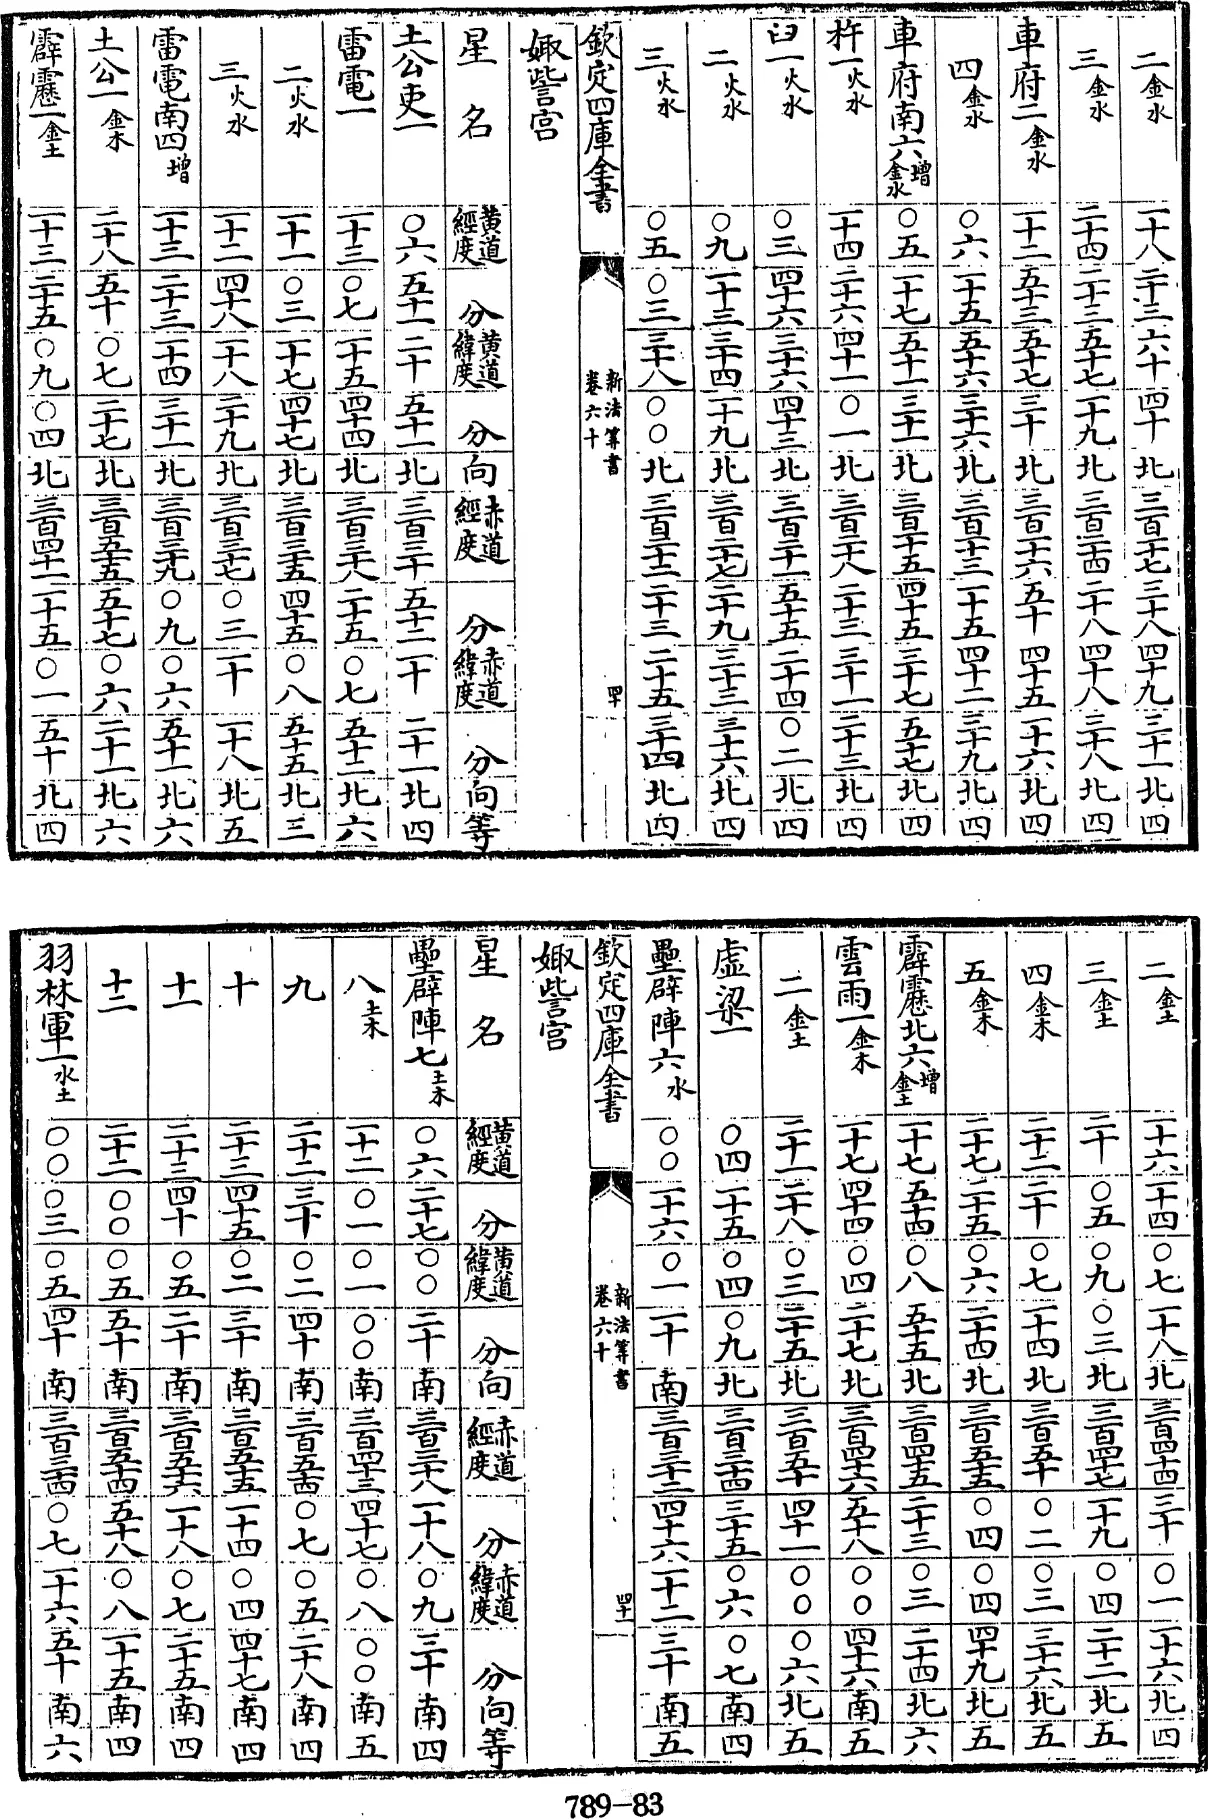 二金水 一十八 二十三 六十 四十 北 三百一十七 三十八 四十九 三十一 北 四
三金水 二十四 二十三 五十七 一十九 北 三百二十四 二十八 四十八 三十八 北 四
車府二金水 一十二 五十三 五十七 三十 北 三百一十六 五十 四十五 一十六 北 四
四金水 〇六 一十五 五十六 三十六 北 三百一十三 一十五 四十二 三十九 北 四
車府南六增金水 〇五 一十七 五十一 三十一 北 三百一十五 四十五 三十七 五十七 北 四
杵一火水 一十四 二十六 四十一 〇一 北 三百二十八 二十三 三十一 二十三 北 四
臼一火水 〇三 四十六 三十六 四十三 北 三百二十一 五十五 二十四 〇二 北 四
二火水 〇九 一十三 三十四 一十九 北 三百二十七 二十九 三十三 三十六 北 四
三火水 〇五 〇三 三十八 〇〇 北 三百二十二 二十三 二十五 三十四 北 四
欽定四庫全書 新法算書 卷六十 四十
娵訾宮
星名 黃道經度 分 黃道緯度 分 向 赤道經度 分 赤道緯度 分 向 等
土公吏一 〇六 五十一 二十 五十一 北 三百三十 五十二 一十 二十一 北 四
雷電一 一十三 〇七 一十五 四十四 北 三百三十八 二十五 〇七 五十二 北 六
二火水 一十一 〇三 一十七 四十七 北 三百三十五 四十五 〇八 五十五 北 三
三火水 一十二 四十八 一十八 二十九 北 三百三十七 〇三 一十 一十八 北 五
雷電南四增 一十三 二十三 一十四 三十一 北 三百三十九 〇九 〇六 五十一 北 六
土公一金木 二十八 五十 〇七 二十七 北 三百五十五 五十七 〇六 二十一 北 六
霹靂一金土 一十三 二十五 〇九 〇四 北 三百四十一 一十五 〇一 五十 北 四
二金土 一十六 一十四 〇七 一十八 北 三百四十四 三十 〇一 一十六 北 四
三金土 二十 〇五 〇九 〇三 北 三百四十七 一十九 〇四 二十二 北 五
四金木 二十二 二十 〇七 一十四 北 三百五十 〇二 〇三 三十六 北 五
五金木 二十七 二十五 〇六 二十四 北 三百五十五 〇四 〇四 四十九 北 五
霹靂北六增金土 一十七 五十四 〇八 五十五 北 三百四十五 二十三 〇三 二十四 北 六
雲雨一金木 一十七 四十四 〇四 二十七 北 三百四十六 五十八 〇〇 四十六 南 五
二金土 二十一 二十八 〇三 二十五 北 三百五十 四十一 〇〇 〇六 北 五
虛梁一 〇四 一十五 〇四 〇九 北 三百三十四 三十五 〇六 〇七 南 四
壘辟陣六水 〇〇 一十六 〇一 一十 南 三百三十二 四十六 一十二 三十 南 五
欽定四庫全書 新法算書 卷六十 四十一
娵訾宮
星名 黃道經度 分 黃道緯度 分 向 赤道經度 分 赤道緯度 分 向 等
壘辟陣七土木 〇六 二十七 〇〇 二十 南 三百三十八 一十八 〇九 三十 南 四
八土木 一十二 〇一 〇一 〇〇 南 三百四十三 四十七 〇八 〇〇 南 五
九 二十二 三十 〇二 四十 南 三百五十四 〇七 〇五 二十八 南 四
十 二十三 四十五 〇二 三十 南 三百五十五 一十四 〇四 四十七 南 四
十一 二十三 四十 〇五 二十 南 三百五十六 一十八 〇七 二十五 南 四
十二 二十二 〇〇 〇五 五十 南 三百五十四 五十八 〇八 一十五 南 四
羽林軍一水土 〇〇 〇三 〇五 四十 南 三百三十四 〇七 一十六 五十 南 六
789-83